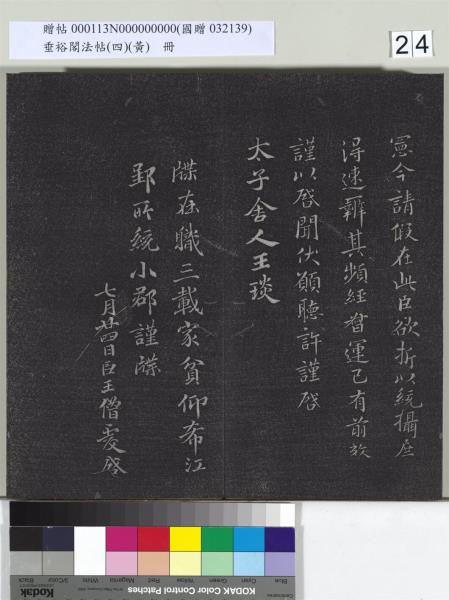 贈帖 000113N000000000(國贈 032139)
垂裕閣法帖(四)(黃) 冊
24
憲今請假在此臣欲折以統攝庶
得速辦其頻經督運已有前效
謹以啓聞伏願聽許謹啓
太子舍人王琰
牒在職三載家貧仰希江
郢所統小郡謹牒
七月廿四日臣王僧虔啓
Blue
Cyan
Green
Yellow
Red
Magenta
White
3/Color
Black
KODAK Color Control Patches
Kodak